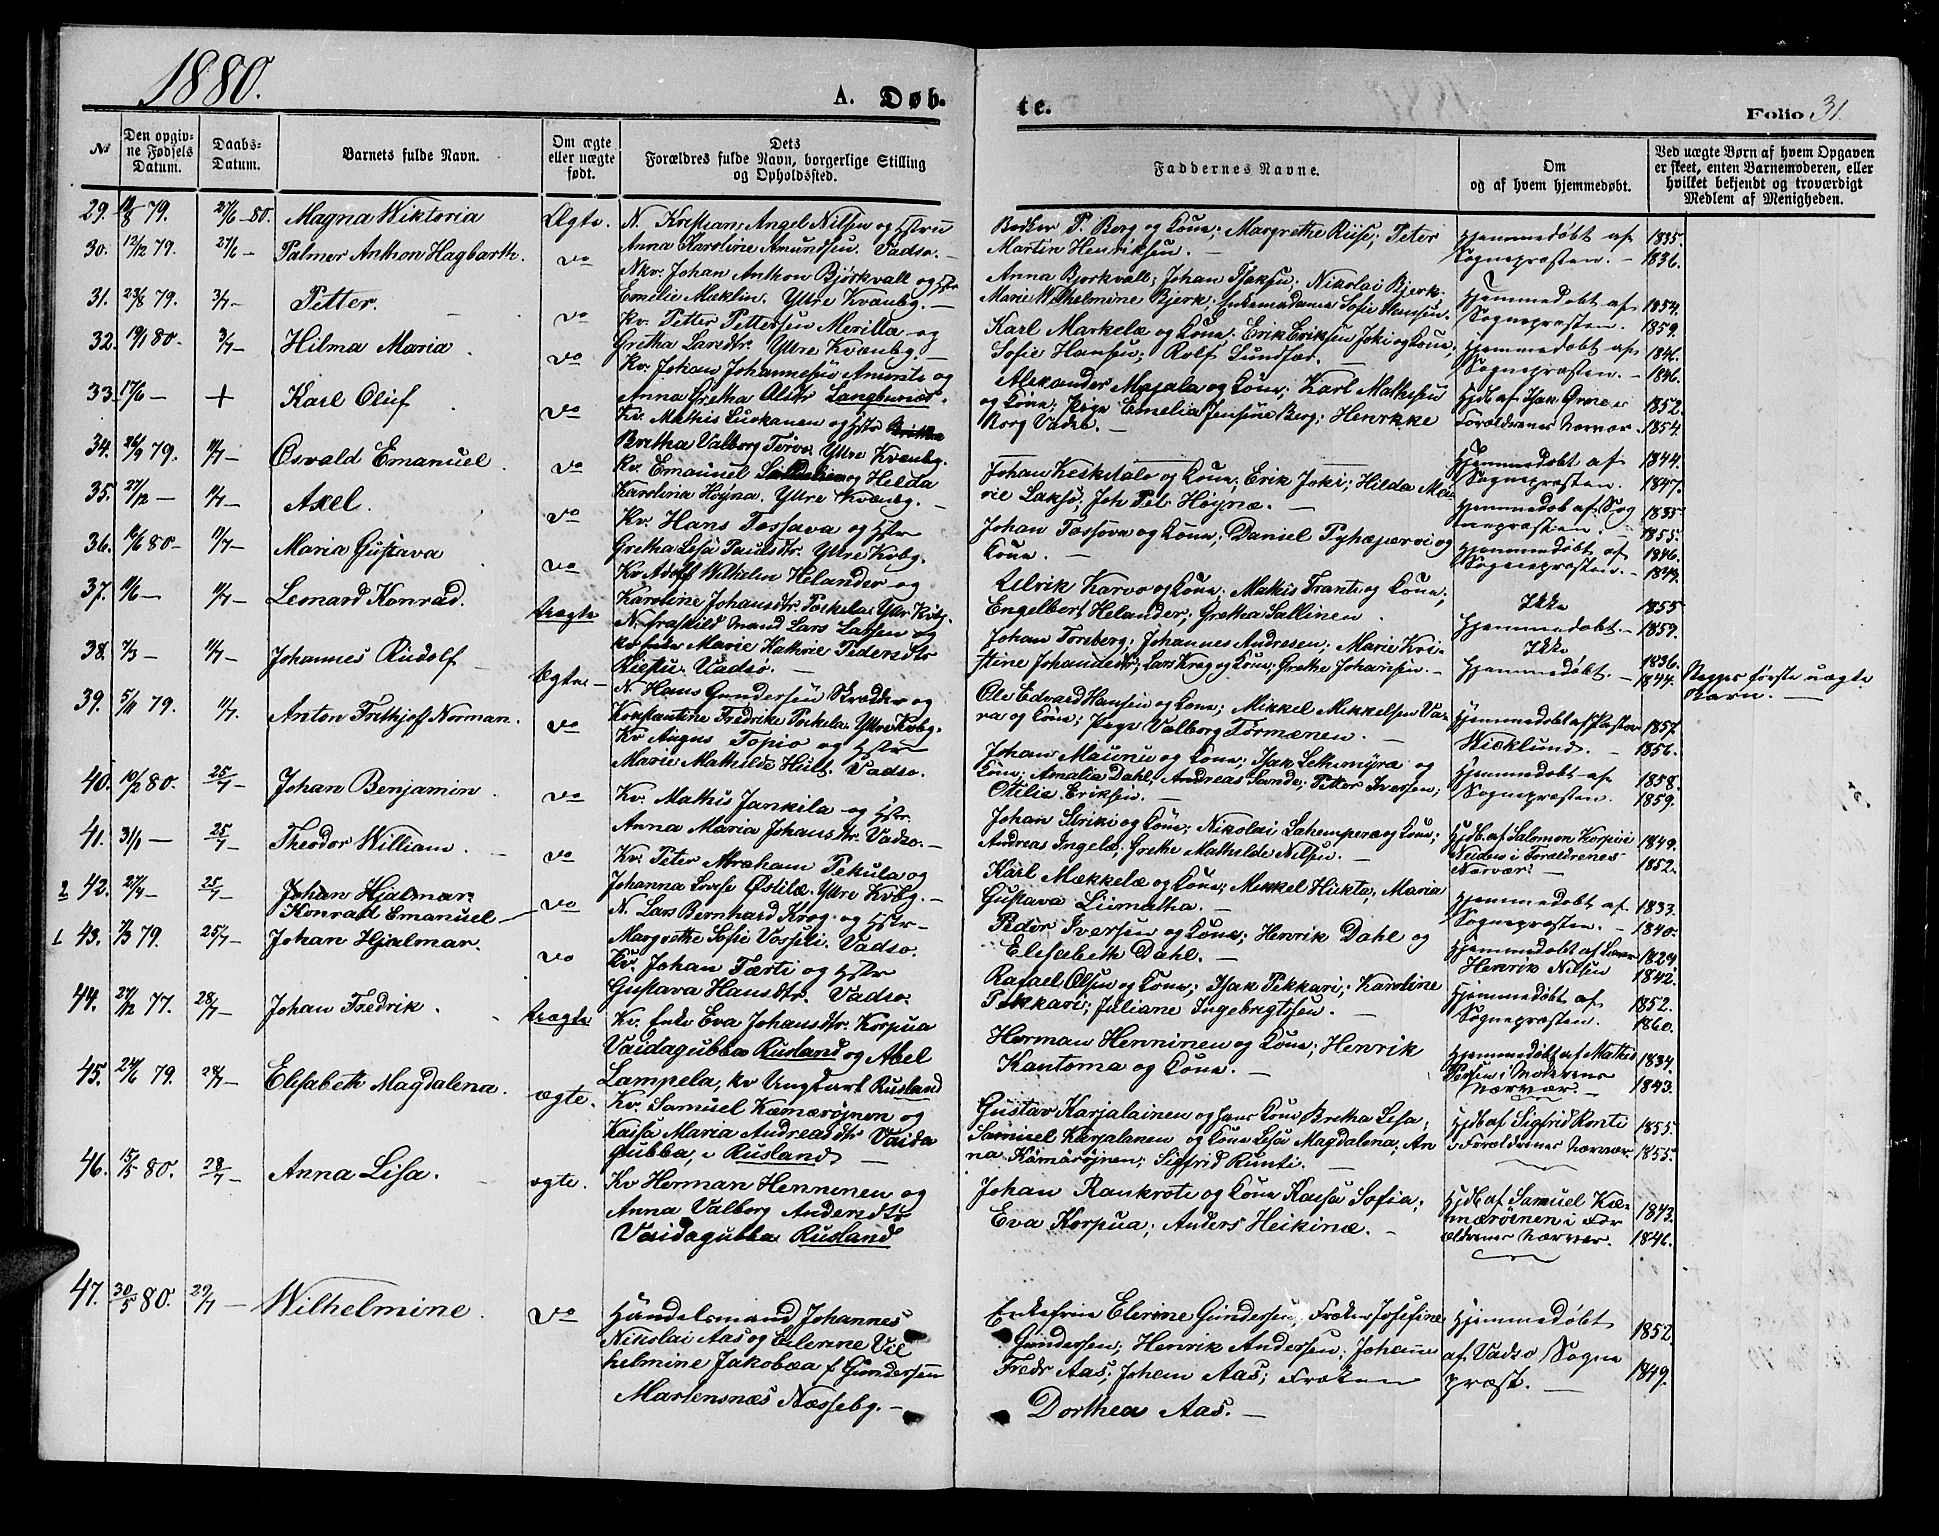 1880.
A. Døb-
te.
Folio 31.
№
Den opgiv-
ne Fødsels
Datum.
Daabs-
Datum.
Barnets fulde Navn.
Om ægte
eller uægte
født.
Dets
Forældres fulde Navn, borgerlige Stilling
og Opholdssted.
Faddernes Navne.
Om
og af hvem hjemmedøbt.
Ved uægte Børn af hvem Opgaven
er skeet, enten Barnemoderen, eller
hvilket bekjendt og troværdigt
Medlem af Menigheden.
29. 79. 27/6 - 80. Magna Wiktoria Ægte.
N. Kristian Angel Nilsen og Hstru
Anna Karoline Amundsen. Vadsø.
Bødker P. Borg og Kone; Margrethe Riise; Peter
Martin Henriksen.
Hjemmedøbt af
Sognepræsten. 1835.
1836.
30. 12/12 79. 27/6 - Palmer Anthon Hagbarth. do
Nkv. Johan Anthon Björkvall og Hstr
Emilie Mæklin. Yttre Kvænbg.
Anna Bjorkvall; Johan Isaksen; Nikolai Bjerk;
Marie Wilhelmine Bjerk; Enkemadame Sofie Hansen.
Hjemmedøbt af
Sognepræsten. 1854.
1859.
31. 23/8 79. 3/7 - Petter. do
Kv. Petter Pettersen Merilla og
Gretha Larsdtr. Yttre Kvænbg.
Karl Markelæ og Kone; Erik Eriksen Joki og Kone;
Sofie Hansen; Rolf Lundfar.
Hjemmedøbt af
Sognepræsten. 1846.
1846.
32. 19/1 80 - 3/7 - Hilma Maria. do
Kv. Johan Johannesen
Anna Gretha Olsdtr Langbunæs.
Alexander Majala og Kone; Karl Mathisen
og Kone; Pige Emelia Jensine Berg; Henrikke
Borg Vadsø.
Hjdb. af Isak
Forældrenes Nærvær. 1852.
1854.
33. 17/6 - + Karl Oluf. do
Kv. Mathis Luskanen og Hstr
Bretha Valborg Törvo. Yttre Kvænbg.
Hjemmedøbt af
Sognepræsten. 1844.
1847.
34. 26/9 79. 11/7 - Osvald Emanuel. do
Kv. Emanuel og Helda
Karolina Høyna. Yttre Kvænbg.
Johan Keskitalo og Kone; Erik Joki; Hilda Ma-
rie Laksø; Joh. Pet. Høynæ.
Hjemmedøb af Sog
nepræsten. 1835
1855.
35. 27/12 - 11/7 - Axel. do
Kv. Hans Tossava og Hstr
Gretha Lisa Paulsdtr. Yttre Kvbg.
Johan Tossova og Kone; Daniel Pyhæjærvi og
Kone.
Hjemmedøbt af
Sognepræsten. 1846.
1849.
36. 16/6 80 - 11/7 - Maria Gustava do
Kv Adolf Wilhelm Helander og
Karoline Johansdtr. Poikela. Yttr. Kvbg.
Ulrik Karvo og Kone; Mathis Frants og Kone;
Engelbert Helander; Gretha Sallinen.
Ikke
Hjemmedøbt. 1855
1859.
37. 9/6 - 11/7 - Leonard Konrad. Uægte
N. fraskild Mand Lars Larsen og
Marie Kathrie Pedersdtr
Vadsø.
Johan Forsberg; Johannes Andresen; Marie Kri-
stine Johansdtr; Lars Krog og Kone; Grethe Johansen.
Ikke
Hjemmedøbt. 1836.
1844.
Begges første uægte
Barn.
38. 7/3 - 11/7 - Johannes Rudolf Ægte
N. Hans Gundersen Skrædder og
Konstantine Fredrike Poikela. Yttre Kvbg.
Ole Edvard Hansen og Kone; Mikkel Mikkelsen Va-
ra og Kone; Pige Valborg Törmænen.
Hjemmedøbt af Pastor
Wicklund. 1857.
1856.
39. 5/11 79. 11/7. Anton Frithjof Norman. do
Kv August Topio og Hstr
Marie Mathilde Hult. Vadsø.
Johan Maunu og Kone; Isak Lehmyra og
Kone; Amalia Dahl; Andreas Sande; Petter Iversen;
Otilie Eriksen.
Hjemmedøbt af
Sognepræsten. 1858.
1859.
40. 10/2 80. 25/7 - Johan Benjamin. do
Kv. Mathis Jankila og Hstr.
Anna Maria Johansdtr. Vadsø.
Johan Seriki og Kone; Nikolai Lahempera og Kone;
Andreas Ingelæ; Grethe Mathilde Nilsen.
Hjdb. af Salomon Korpii
Neiden i Forældrenes
Nærvær. 1849.
1852.
41. 31/1 - 25/7 - Theodor William. do
Kv. Peter Abraham Pekula og
Johanna Lovise Østilæ. Yttre Kvbg.
Karl Mækkelæ og Kone; Mikkel Hiekta; Maria
Gustava Liimatha.
Hjemmedøbt af
Sognepræsten. 1833.
1840.
2 42. 27/4 - 25/7 - Johan Hjalmar
Konrad Emanuel do
N. Lars Bernhard Krog og Hstr
Margrethe Sofie Vorseli. Vadsø.
Peder Iversen og Kone; Henrik Dahl og
Elisabeth Dahl.
Hjemmedøbt af Lærer
Henrik Nilsen 1829
1842.
1 43. 7/3 79. 25/7 - Johan Hjalmar. do
Kv. Johan Tærti og Hstr
Gustava Hansdtr. Vadsø.
Rafael Olsen og Kone; Isak Pekkari; Karoline
Pekkari; Juliane Ingebrigtsen.
Hjemmedøbt af
Sognepræsten. 1852.
1860.
44. 27/12 77. 28/7 - Johan Fredrik. Uægte
Kv. Enke Eva Johansdtr. Korpua
Vaidagubba Rusland og Abel
Lampela, kv Ungkarl Rusland
Herman Henninen og Kone; Henrik
Kantoma og Kone.
Hjemmedøbt af Mathis
i Moderens
Nærvær. 1834.
1843.
45. 24/6 79. 28/7 - Elisabeth Magdalena. ægte.
Kv. Samuel Kæmæröjnen og
Kaisa Maria Andreasdtr Vaida
gubba, i Rusland
Gustav Karjalainen og hans Kone Bretha Lisa;
Samuel Karjalanen og Kone Lisa Magdalena; An-
na Kämäröjnen; Sigfrid Runti.
Hjdb af Sigfrid Ronti
i Forældrenes Nærvær. 1855.
1855.
46. 15/5 80. 28/7 - Anna Lisa. ægte.
Kv Herman Henninen og
Anna Valborg Andersdtr
Vaidagubba Rusland
Johan Rankrote og Kone Kaisa Sofia;
Eva Korpua; Anders Heikinæ.
Hjdb af Samuel Kæ-
mæröinen i For
ældrenes Nærvær. 1843.
1846.
47. 30/5 80. 29/7 - Wilhelmine. do
Handelsmand Johannes
Nikolai Aas og Elerine Vil
helmine Jakobæa f. Gundersen
Martensnæs Næssebg.
Enkefrue Elerine Gundersen; Frøken Josefine
Gundersen; Henrik Andersen; Johan
Fredr Aas; Johem Aas; Frøken
Dorthea Aas.
Hjemmedøbt
af Vadsø Sogne
præst. 1852.
1849.